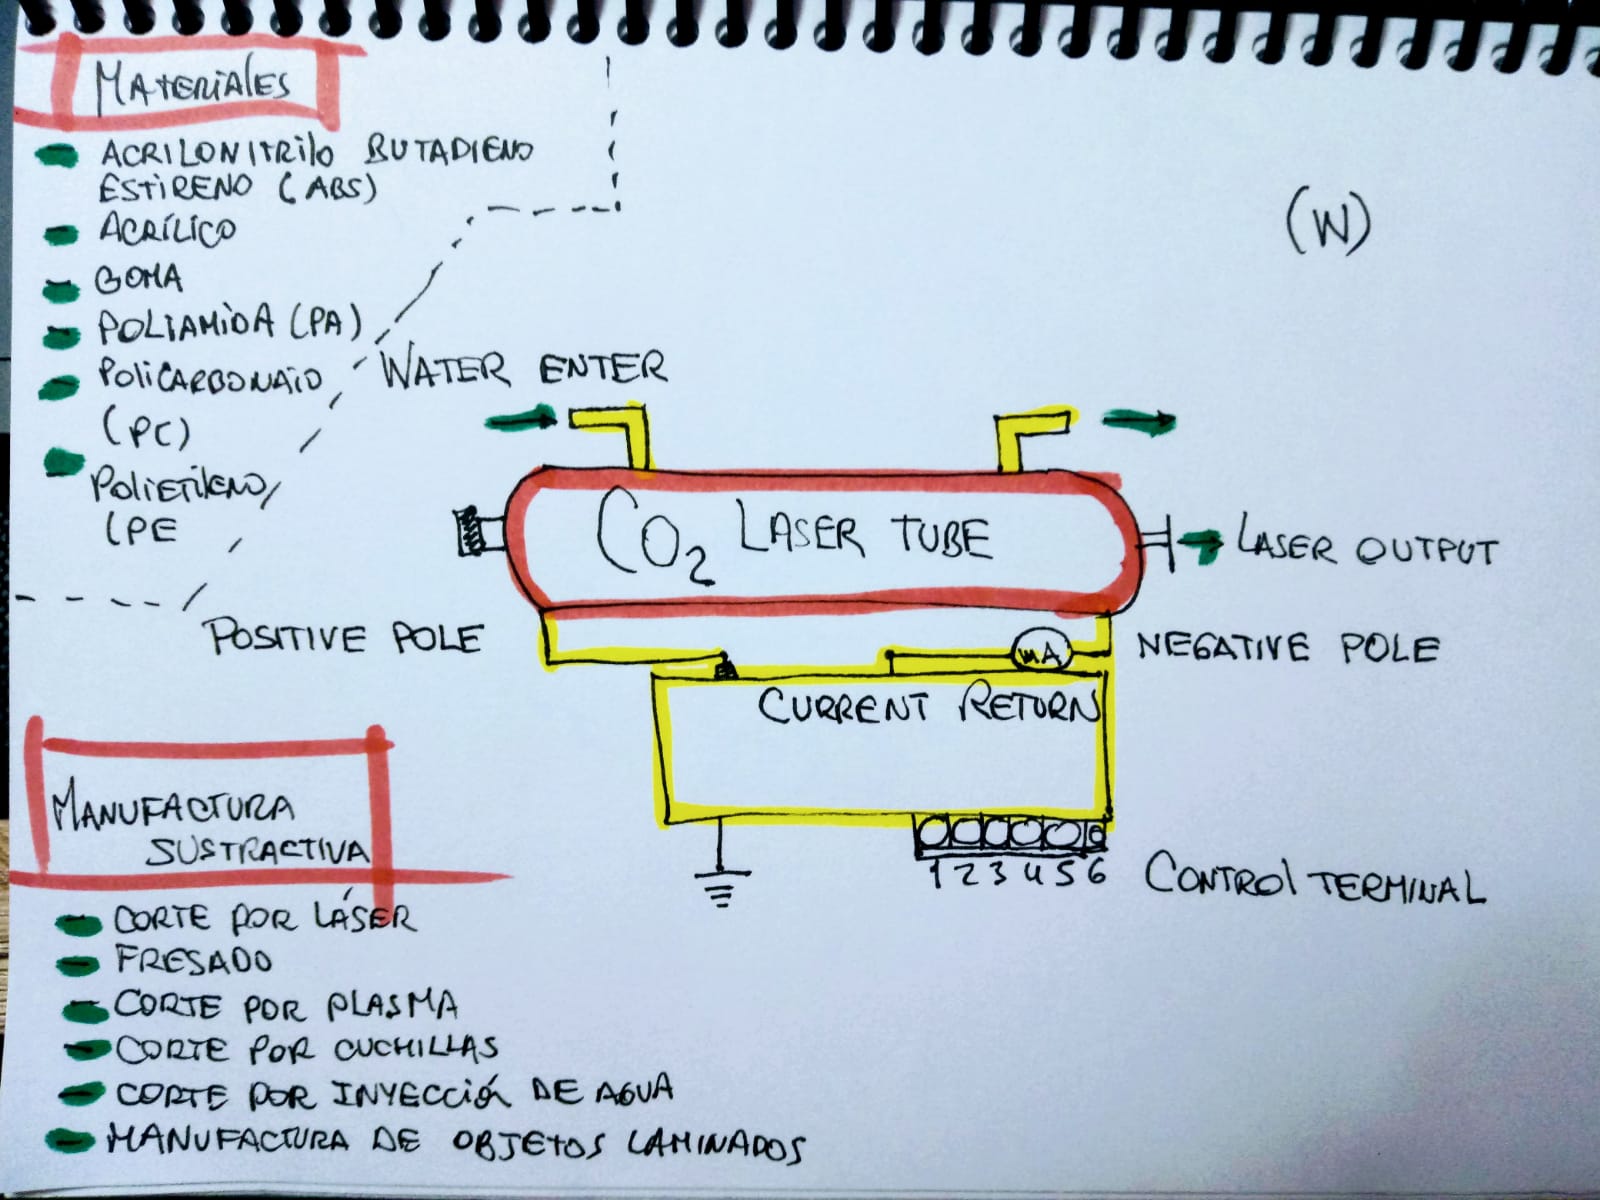 MATERIALES
ACRILONITRILO BUTADIENO
ESTIRENO (ABS)
ACRÍLICO
GOMA
POLIAMIDA (PA)
POLICARBONATO
(PC)
POLIETILENO
(PE
(W)
WATER ENTER
CO2 LASER TUBE
LASER OUTPUT
POSITIVE POLE
mA
NEGATIVE POLE
CURRENT RETURN
1 2 3 4 5 6
CONTROL TERMINAL
MANUFACTURA
SUSTRACTIVA
CORTE POR LÁSER
FRESADO
CORTE POR PLASMA
CORTE POR CUCHILLAS
CORTE POR INYECCIÓN DE AGUA
MANUFACTURA DE OBJETOS LAMINADOS